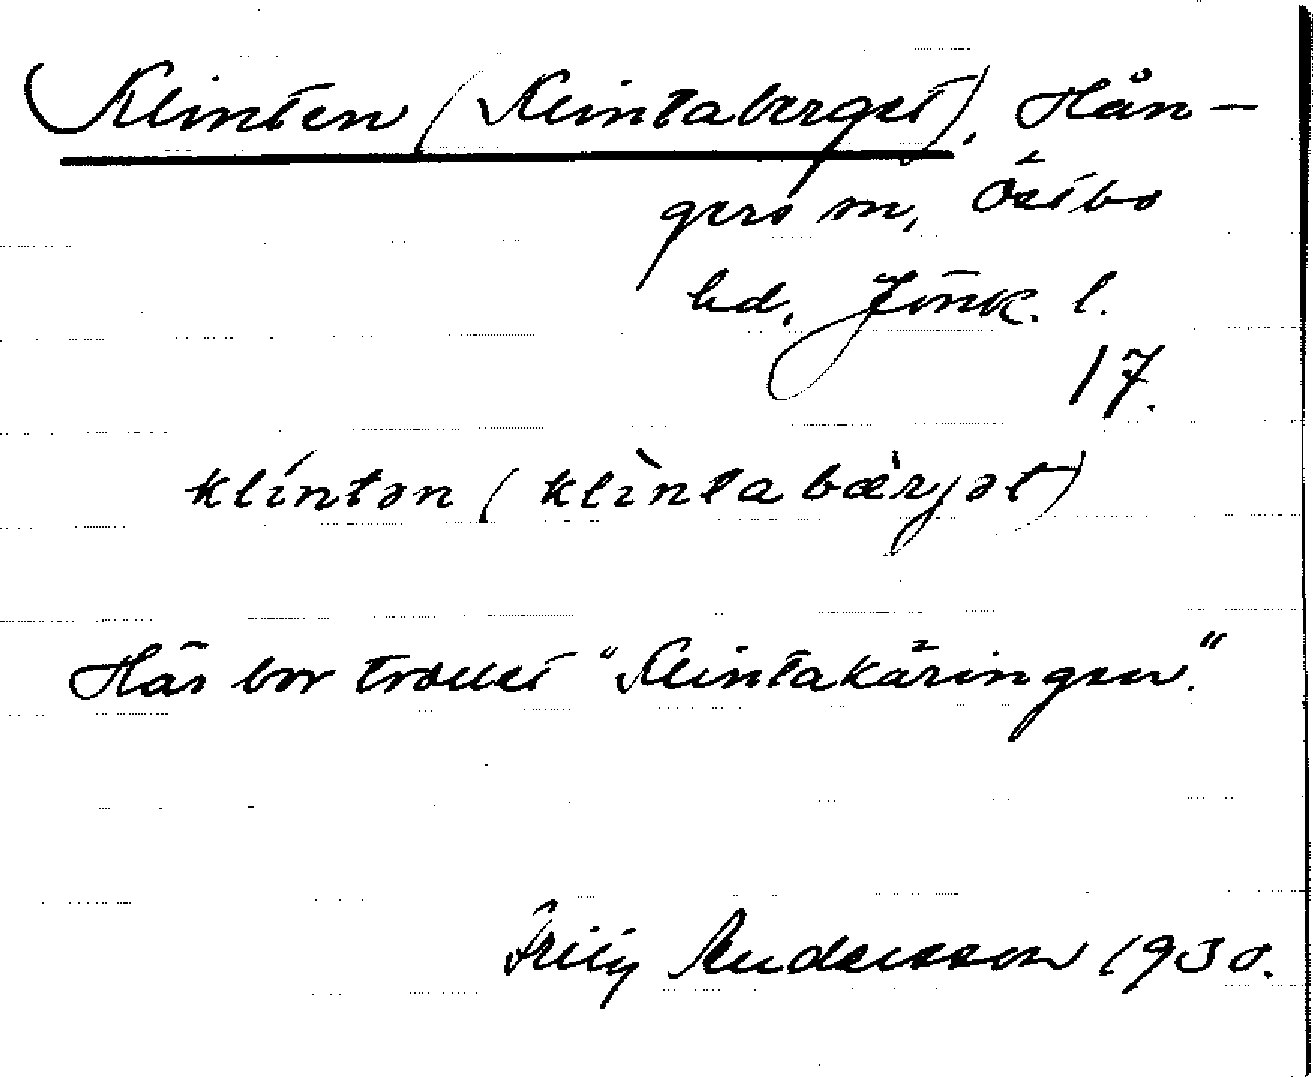 Klinten (Klintaberget), Hån-
gers sn, Östbo
hd. Jönk. l.
17.
klíntən (klìntabær̀jət)
Här bor trollet "Klintakäringen."
Andersson 1930.